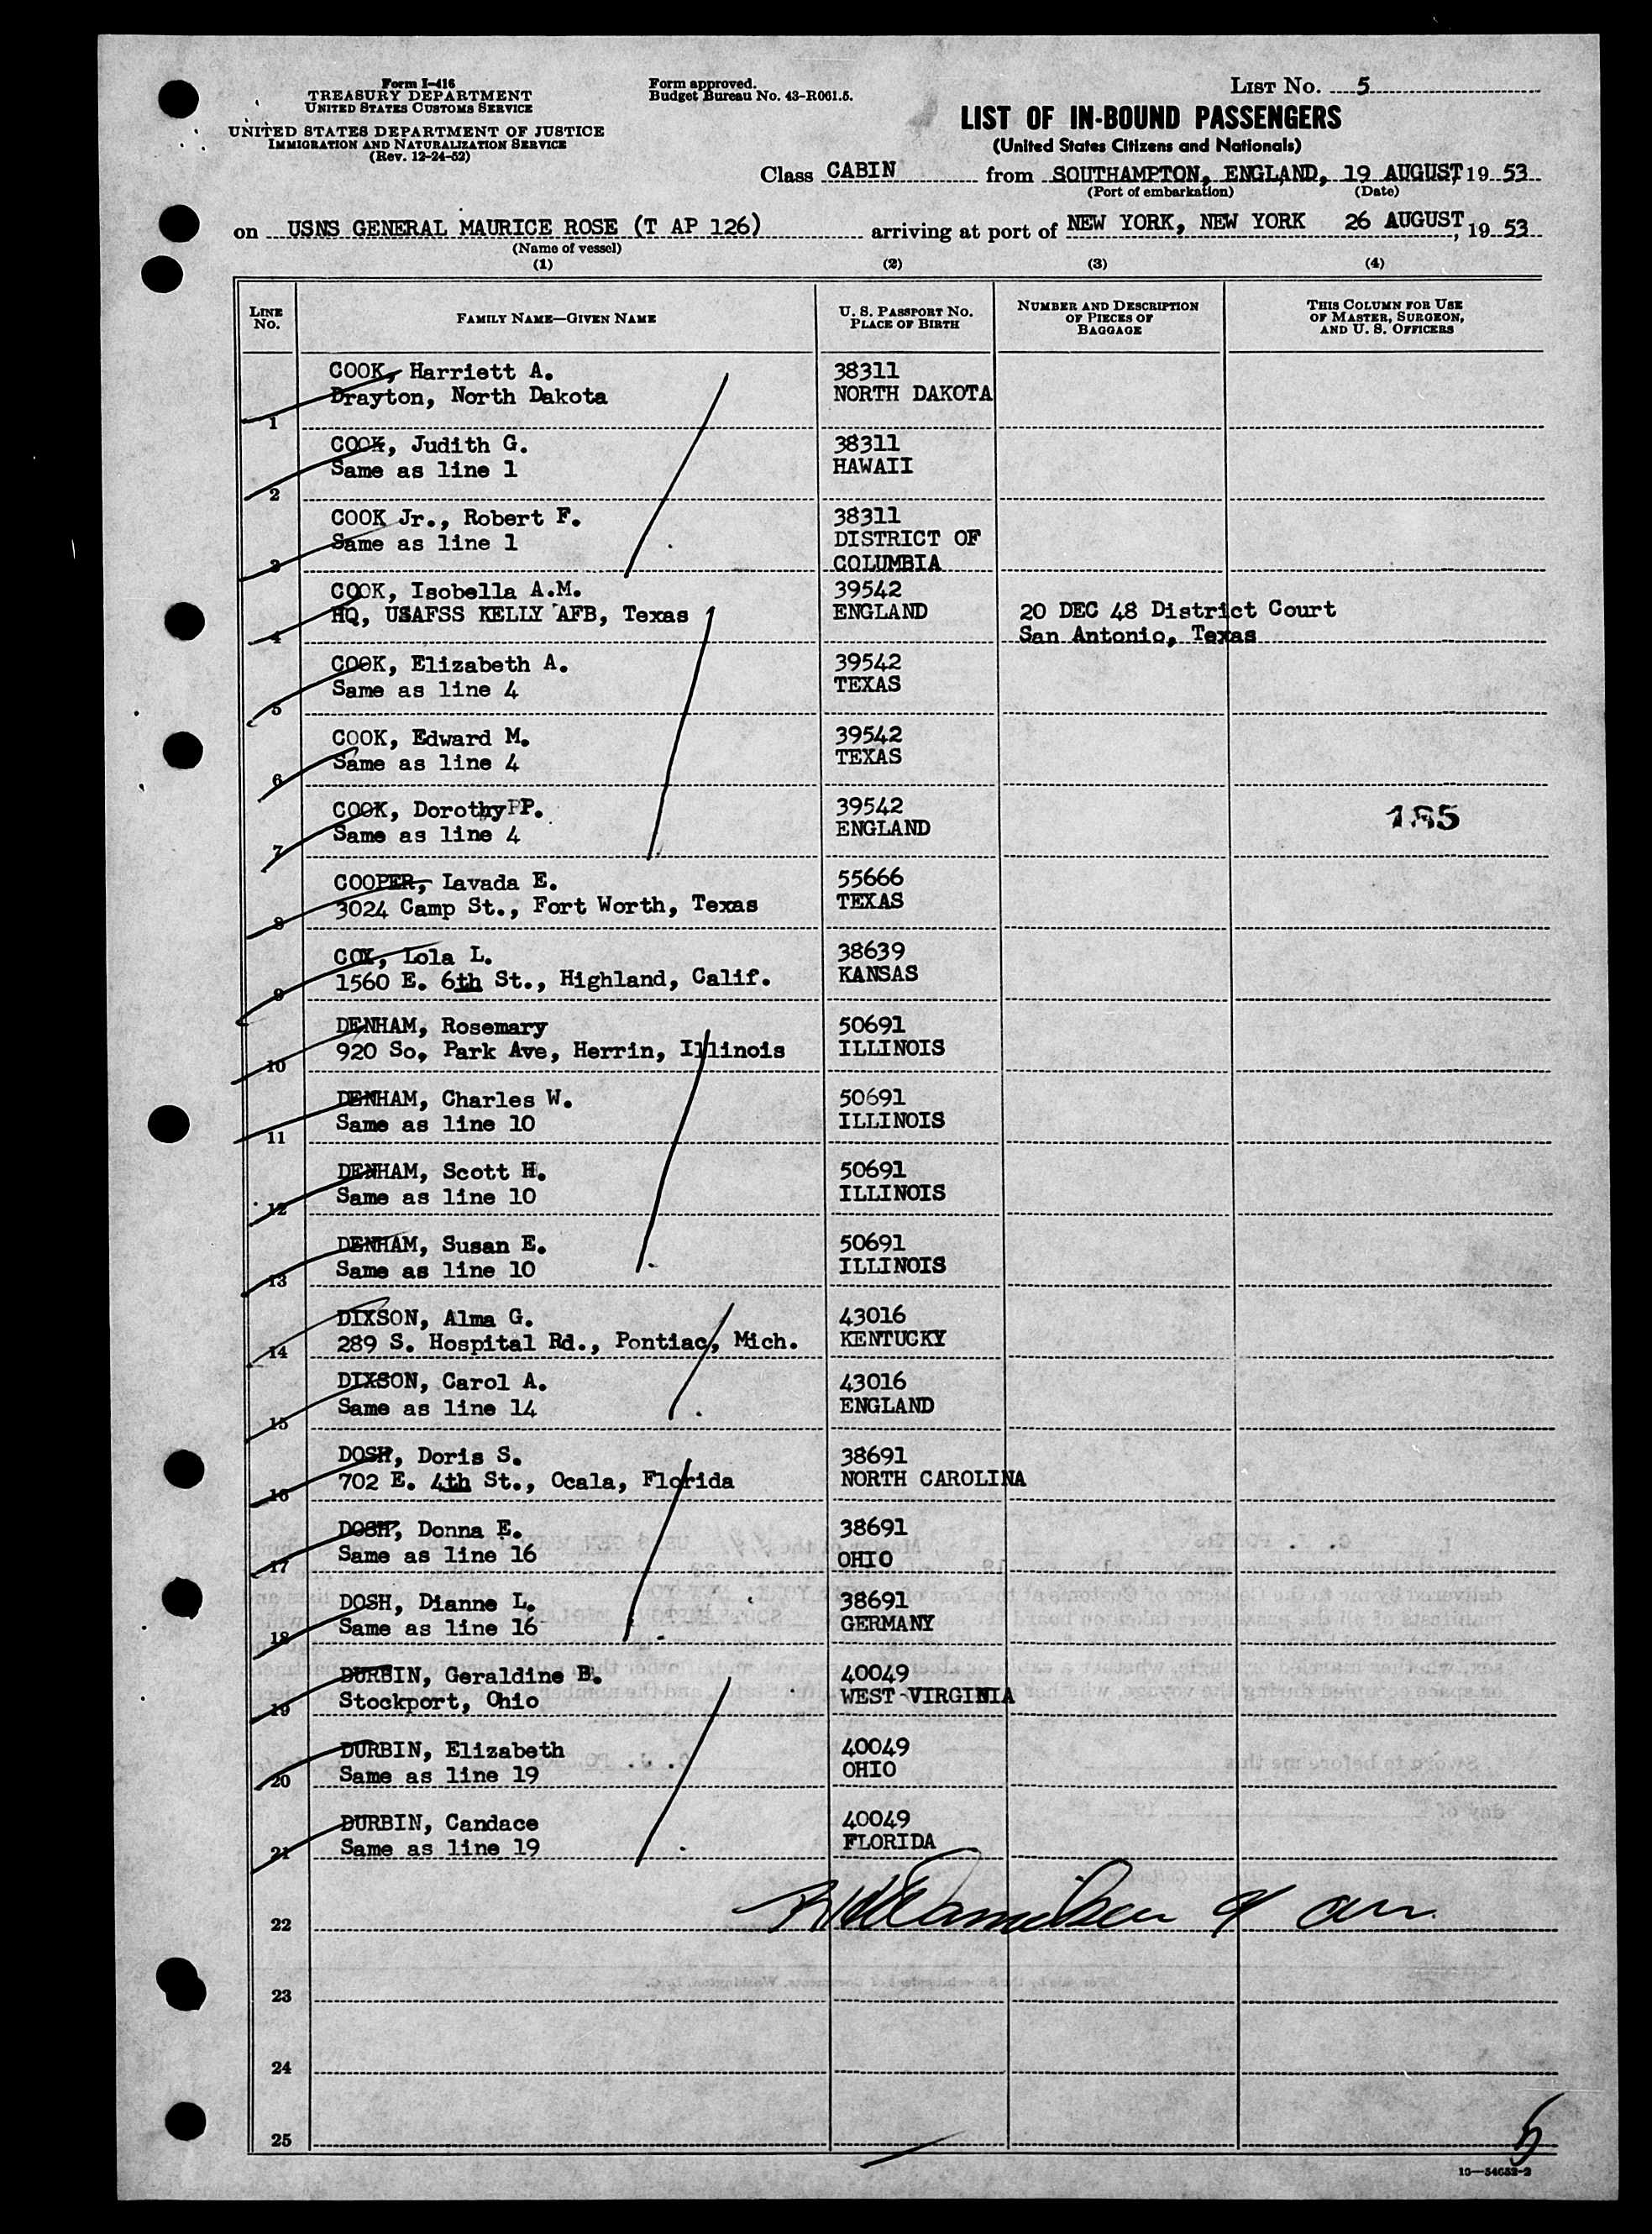 Form I-416
TREASURY DEPARTMENT
UNITED STATES CUSTOMS SERVICE
UNITED STATES DEPARTMENT OF JUSTICE
IMMIGRATION AND NATURALIZATION SERVICE
(Rev. 12-24-52)
Form approved.
Budget Bureau No. 43-R061.5.
LIST NO. 5
LIST OF IN-BOUND PASSENGERS
(United States Citizens and Nationals)
Class CABIN from SOUTHAMPTON, ENGLAND, 19 AUGUST, 19 53
(Port of embarkation) (Date)
on USNS GENERAL MAURICE ROSE (T AP 126) arriving at port of NEW YORK, NEW YORK 26 AUGUST, 19 53
(Name of vessel)
(1) (2) (3) (4)
LINE NO. FAMILY NAME—GIVEN NAME U. S. PASSPORT NO. PLACE OF BIRTH NUMBER AND DESCRIPTION OF PIECES OF BAGGAGE THIS COLUMN FOR USE OF MASTER, SURGEON, AND U. S. OFFICERS
COOK, Harriett A. 38311
Drayton, North Dakota NORTH DAKOTA
1
COOK, Judith G. 38311
Same as line 1 HAWAII
2
COOK Jr., Robert F. 38311
Same as line 1 DISTRICT OF
3 COLUMBIA
COOK, Isobella A.M. 39542
HQ, USAFSS KELLY AFB, Texas ENGLAND 20 DEC 48 District Court
4 San Antonio, Texas
COOK, Elizabeth A. 39542
Same as line 4 TEXAS
5
COOK, Edward M. 39542
Same as line 4 TEXAS
6
COOK, Dorothy P. 39542
Same as line 4 ENGLAND 185
7
COOPER, Lavada E. 55666
3024 Camp St., Fort Worth, Texas TEXAS
8
COX, Lola L. 38639
1560 E. 6th St., Highland, Calif. KANSAS
9
DENHAM, Rosemary 50691
920 So, Park Ave, Herrin, Illinois ILLINOIS
10
DENHAM, Charles W. 50691
Same as line 10 ILLINOIS
11
DENHAM, Scott H. 50691
Same as line 10 ILLINOIS
12
DENHAM, Susan E. 50691
Same as line 10 ILLINOIS
13
DIXSON, Alma G. 43016
289 S. Hospital Rd., Pontiac, Mich. KENTUCKY
14
DIXSON, Carol A. 43016
Same as line 14 ENGLAND
15
DOSH, Doris S. 38691
702 E. 4th St., Ocala, Florida NORTH CAROLINA
16
DOSH, Donna E. 38691
Same as line 16 OHIO
17
DOSH, Dianne L. 38691
Same as line 16 GERMANY
18
DURBIN, Geraldine B. 40049
Stockport, Ohio WEST VIRGINIA
19
DURBIN, Elizabeth 40049
Same as line 19 OHIO
20
DURBIN, Candace 40049
Same as line 19 FLORIDA
21
22
23
24
25
5
16—54652-2